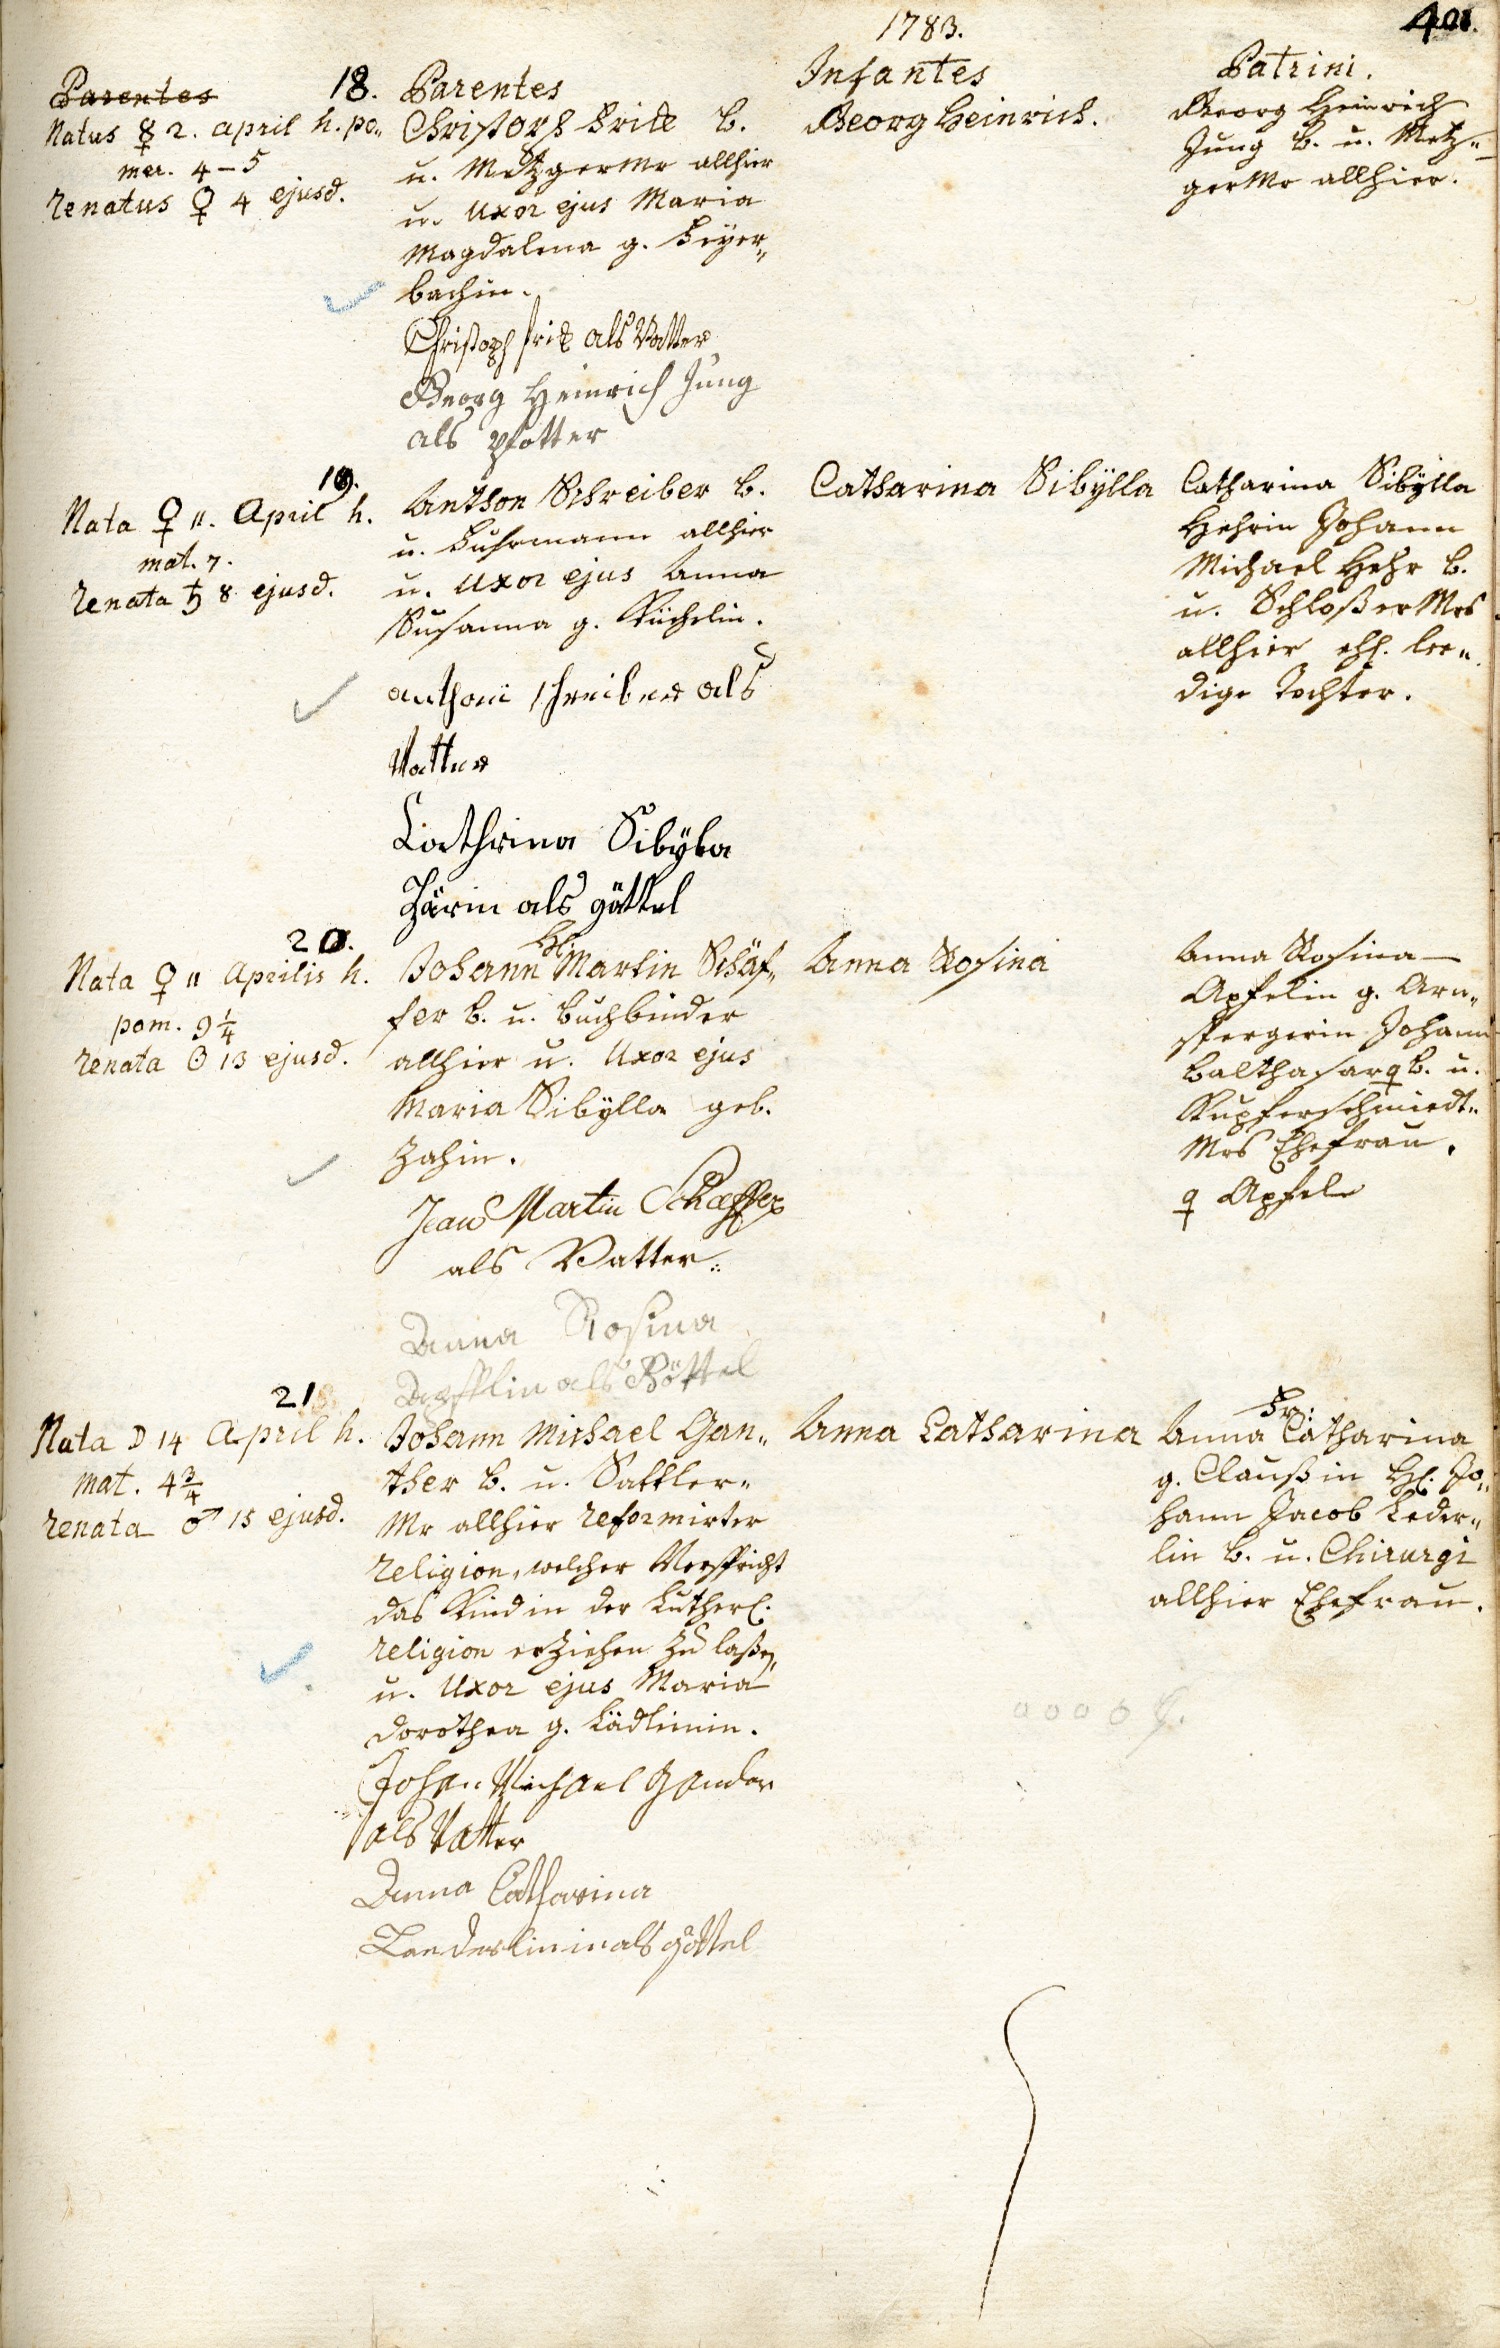 1783.
401.
Parentes
18. Parentes
Infantes
Patrini.
Natus ☿ 2. april h. po„
mer. 4–5
renatus ♀ 4 ejusd.
Christoph Fritz b.
u. MetzgerMr allhier
u. Uxor ejus Maria
Magdalena g. Beyer„
bachin.
Christoph fritz als Vatter
Georg Heinrich Jung
als pfotter
Georg Heinrich.
Georg Heinrich
Jung b. u. Metz„
gerMr allhier.
19.
Nata ♀ 11. April h.
mat. 7.
renata ♄ 8 ejusd.
Anthon Schreiber b.
u. Fuhrmann allhier
u. Uxor ejus Anna
Susanna g. Küchelin.
anthoni schreiber als
Vatter
Cathrina Sibÿla
Härin als göttel
Catharina Sibÿlla
Catharina Sibÿlla
Hehrin Johann
Michael Hehr b.
u. SchloßerMrs
allhier ehl. lee„
dige Tochter.
20.
Nata ♀ 11 Aprilis h.
pom. 9 1/4
renata ☉ 13 ejusd.
Johann Hl. Martin Schäf„
fer b. u. buchbinder
allhier u. Uxor ejus
Maria Sibÿlla geb.
Zahin.
Jean Martin Schæffer
als Vatter.
Anna Rosina
Apfflin als Göttel
Anna Rosina
Anna Rosina
Apfelin g. Arn„
spergerin Johann
Balthasar q b. u.
Kupferschmiedt„
Mrs Ehefrau.
q Apfele
21
Nata ☽ 14 April h.
mat. 4 3/4
renata ♂ 15 ejusd.
Johann Michael Gan„
ther b. u. Sattler„
Mr allhier reformirter
religion, welcher Verspricht
das Kind in der Lutherl.
religion erziehen zu laßen,
u. Uxor ejus Maria
Dorothea g. Lädlinin.
Johan Michael Gander
als Vatter
Anna Catharina
Leederlinin als göttel
Anna Catharina
Fr.
Anna Catharina
g. Claußin Hl. Jo„
hann Jacob Leder„
lin b. u. Chirurgi
allhier Ehefrau.